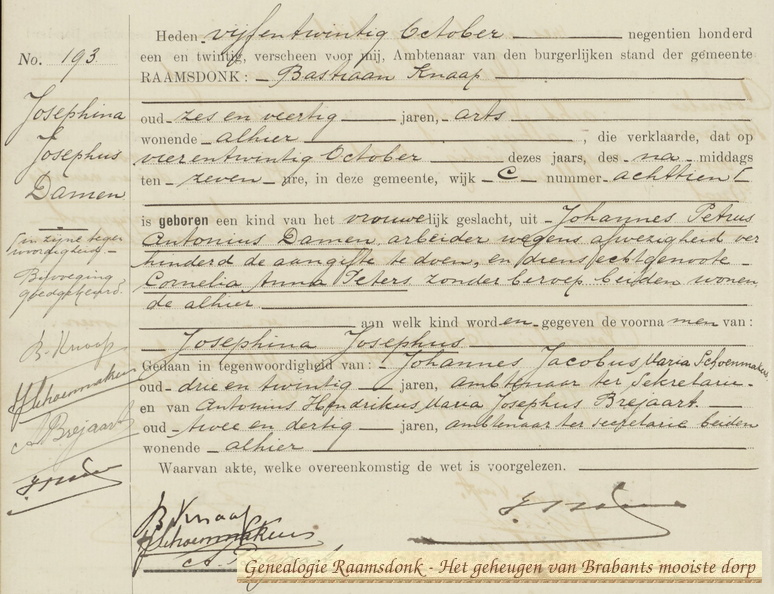 No. 193
Josephina
Josephus
Damen
⌈ in zijne tegen
woordigheid –
Bijvoeging
goedgekeurd.
B. Knaap
JJSchoenmakers
A Brejaart
Heden vijfentwintig October negentien honderd
een en twintig, verscheen voor mij, Ambtenaar van den burgerlijken stand der gemeente
RAAMSDONK: – Bastiaan Knaap
oud – zes en veertig – jaren, – arts
wonende – alhier – , die verklaarde, dat op
vierentwintig October dezes jaars, des – na – middags
ten – zeven – ure, in deze gemeente, wijk – C – nummer – achttien ⌈
is geboren een kind van het vrouwelijk geslacht, uit – Johannes Petrus
Antonius Damen, arbeider wegens afwezigheid ver
hinderd de aangifte te doen, en diens echtgenoote –
Cornelia Anna Peters, zonder beroep beiden wonen
de alhier
aan welk kind word en gegeven de voorna men van:
Josephina Josephus
Gedaan in tegenwoordigheid van: – Johannes Jacobus Maria Schoenmakers
oud – drie en twintig – jaren, ambtenaar ter Sekretarie –
en van Antonius Hendrikus Maria Josephus Brejaart. –
oud – twee en dertig – jaren, ambtenaar ter secretarie beiden
wonende – alhier
Waarvan akte, welke overeenkomstig de wet is voorgelezen.
B. Knaap
JJSchoenmakers
Genealogie Raamsdonk - Het geheugen van Brabants mooiste dorp